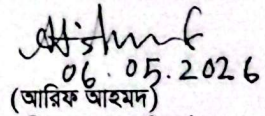 06.05.2026
(আরিফ আহমদ)